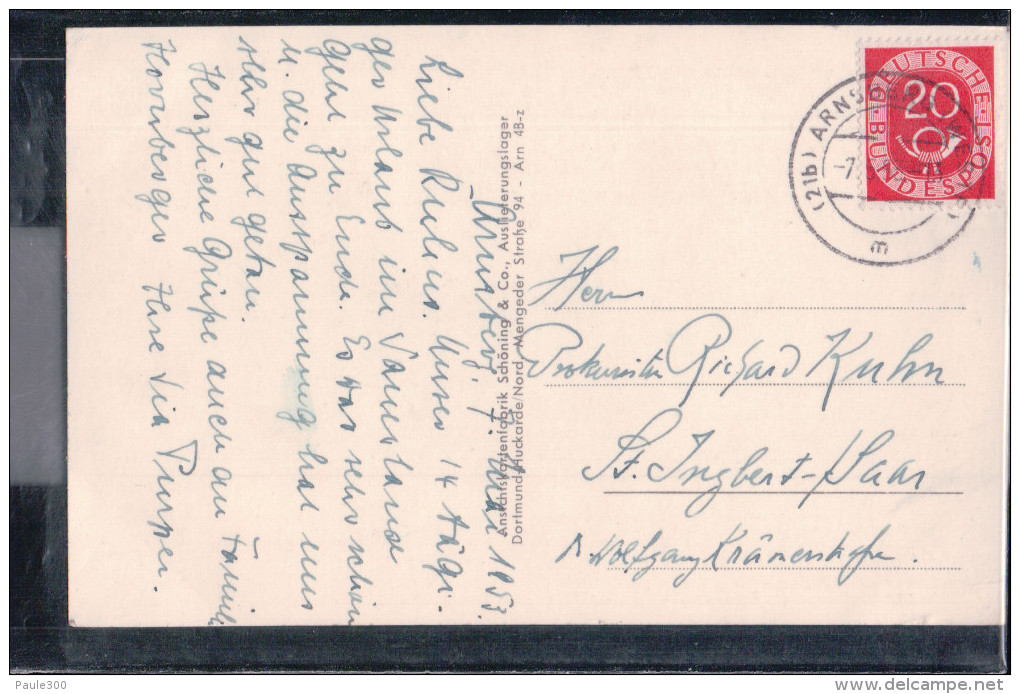 Arnsberg, 7. Mai 1953.
Liebe Kuhns. Unser 14 tägi-
ger Urlaub im Sauerland
geht zu Ende. Es war sehr schön
u. die Ausspannung hat uns
sehr gut getan.
Herzliche Grüße auch an Familie
Ihre
Ansichtskartenfabrik Schöning & Co., Auslieferungslager
Dortmund-Huckarde/Nord, Mengeder Straße 94 - Arn 48-z
DEUTSCHE
BUNDESPOST
20
(21b) ARNSBERG
-7.
m
Herrn
Prokurist Richard Kuhn
St. Ingbert-Saar
Wolfgang Krämerstraße.
Paule300
delcampe.net